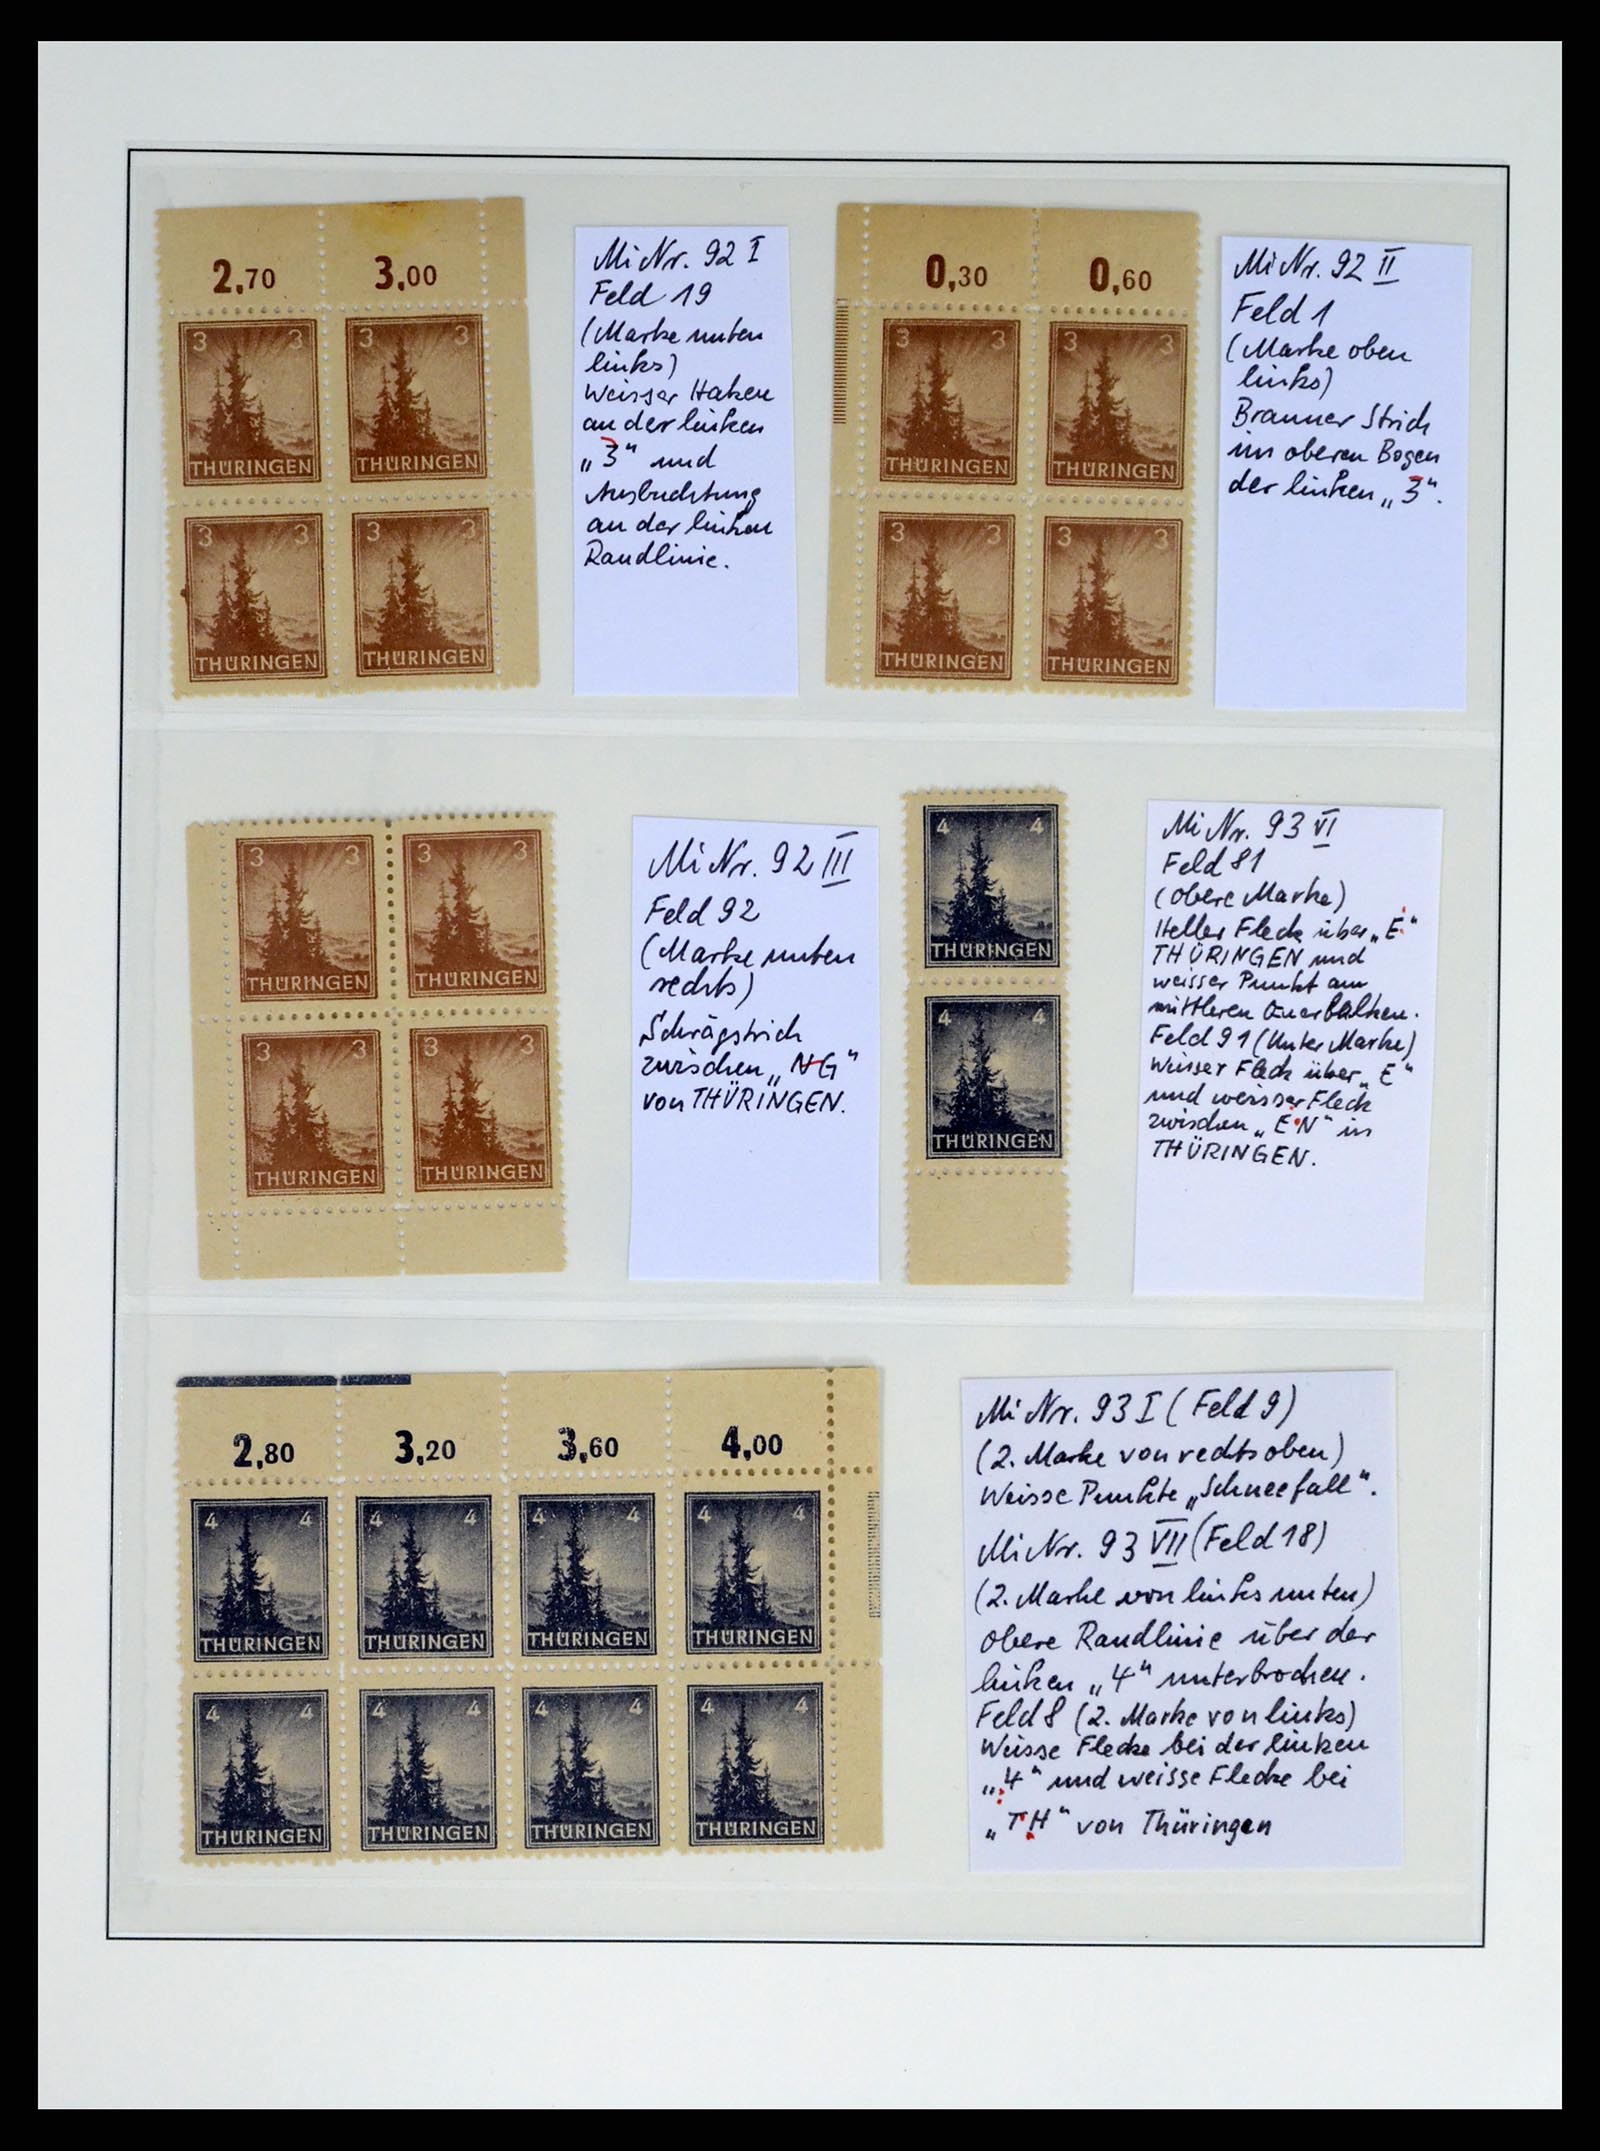 2,70 3,00
3 3 3 3
THÜRINGEN THÜRINGEN
3 3 3 3
THÜRINGEN THÜRINGEN
Mi Nr. 92 I
Feld 19
(Marke unten
links)
Weisser Haken
an der linken
„3“ und
Ausbuchtung
an der linken
Randlinie.
0,30 0,60
3 3 3 3
THÜRINGEN THÜRINGEN
3 3 3 3
THÜRINGEN THÜRINGEN
Mi Nr. 92 II
Feld 1
(Marke oben
links)
Brauner Strich
im oberen Bogen
der linken „3“.
3 3 3 3
THÜRINGEN THÜRINGEN
3 3 3 3
THÜRINGEN THÜRINGEN
Mi Nr. 92 III
Feld 92
(Marke unten
rechts)
Schrägstrich
zwischen „NG“
von THÜRINGEN.
4 4
THÜRINGEN
4 4
THÜRINGEN
Mi Nr. 93 VI
Feld 81
(obere Marke)
Heller Fleck über „E“
THÜRINGEN und
weisser Punkt am
mittleren Querbalken.
Feld 91 (Unter Marke)
Weisser Fleck über „E“
und weisser Fleck
zwischen „EN“ in
THÜRINGEN.
2,80 3,20 3,60 4,00
4 4 4 4 4 4 4 4
THÜRINGEN THÜRINGEN THÜRINGEN THÜRINGEN
4 4 4 4 4 4 4 4
THÜRINGEN THÜRINGEN THÜRINGEN THÜRINGEN
Mi Nr. 93 I (Feld 9)
(2. Marke von rechts oben)
Weisse Punkte „Schneefall“.
Mi Nr. 93 VII (Feld 18)
(2. Marke von links unten)
obere Randlinie über der
linken „4“ unterbrochen.
Feld 8 (2. Marke von links)
Weisse Flecke bei der linken
„4“ und weisse Flecke bei
„TH“ von Thüringen